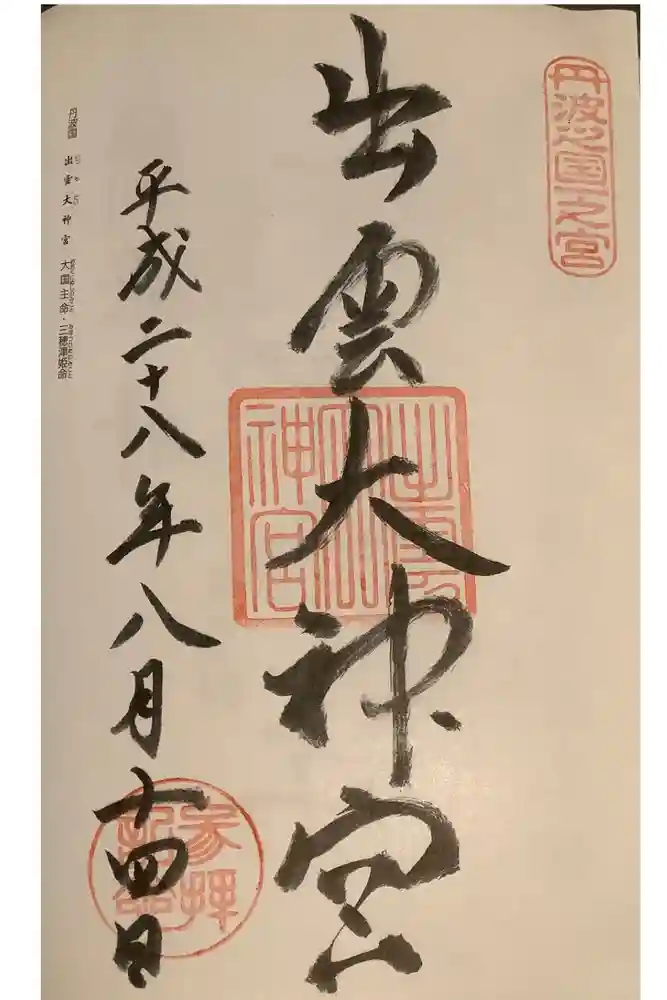 丹波国一之宮
出雲大神宮
出雲大神宮
平成二十八年八月十四日
参拝記念
丹波国 出雲大神宮 大国主命・三穂津姫命